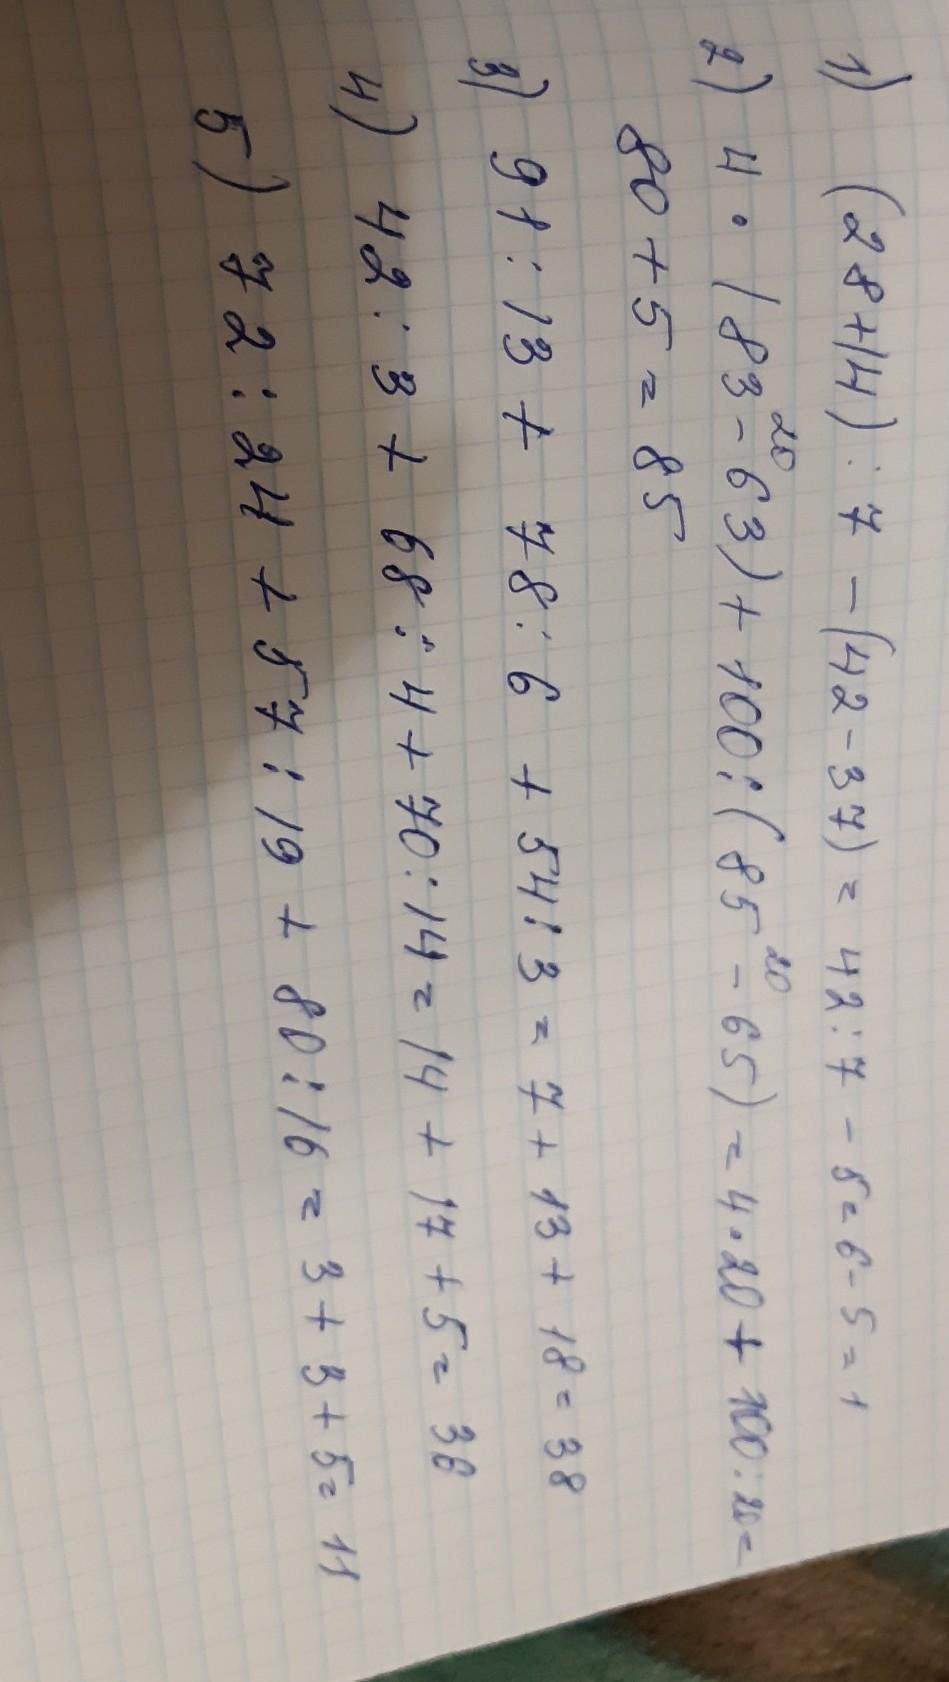 1) (28+14) : 7 - (42-37) = 42:7 - 5 = 6-5 = 1
20 20
2) 4 · (83-63) + 100 : (85-65) = 4·20 + 100:20 =
80 + 5 = 85
3) 91 : 13 + 78 : 6 + 54 : 3 = 7 + 13 + 18 = 38
4) 42 : 3 + 68 : 4 + 70 : 14 = 14 + 17 + 5 = 36
5) 72 : 24 + 57 : 19 + 80 : 16 = 3 + 3 + 5 = 11